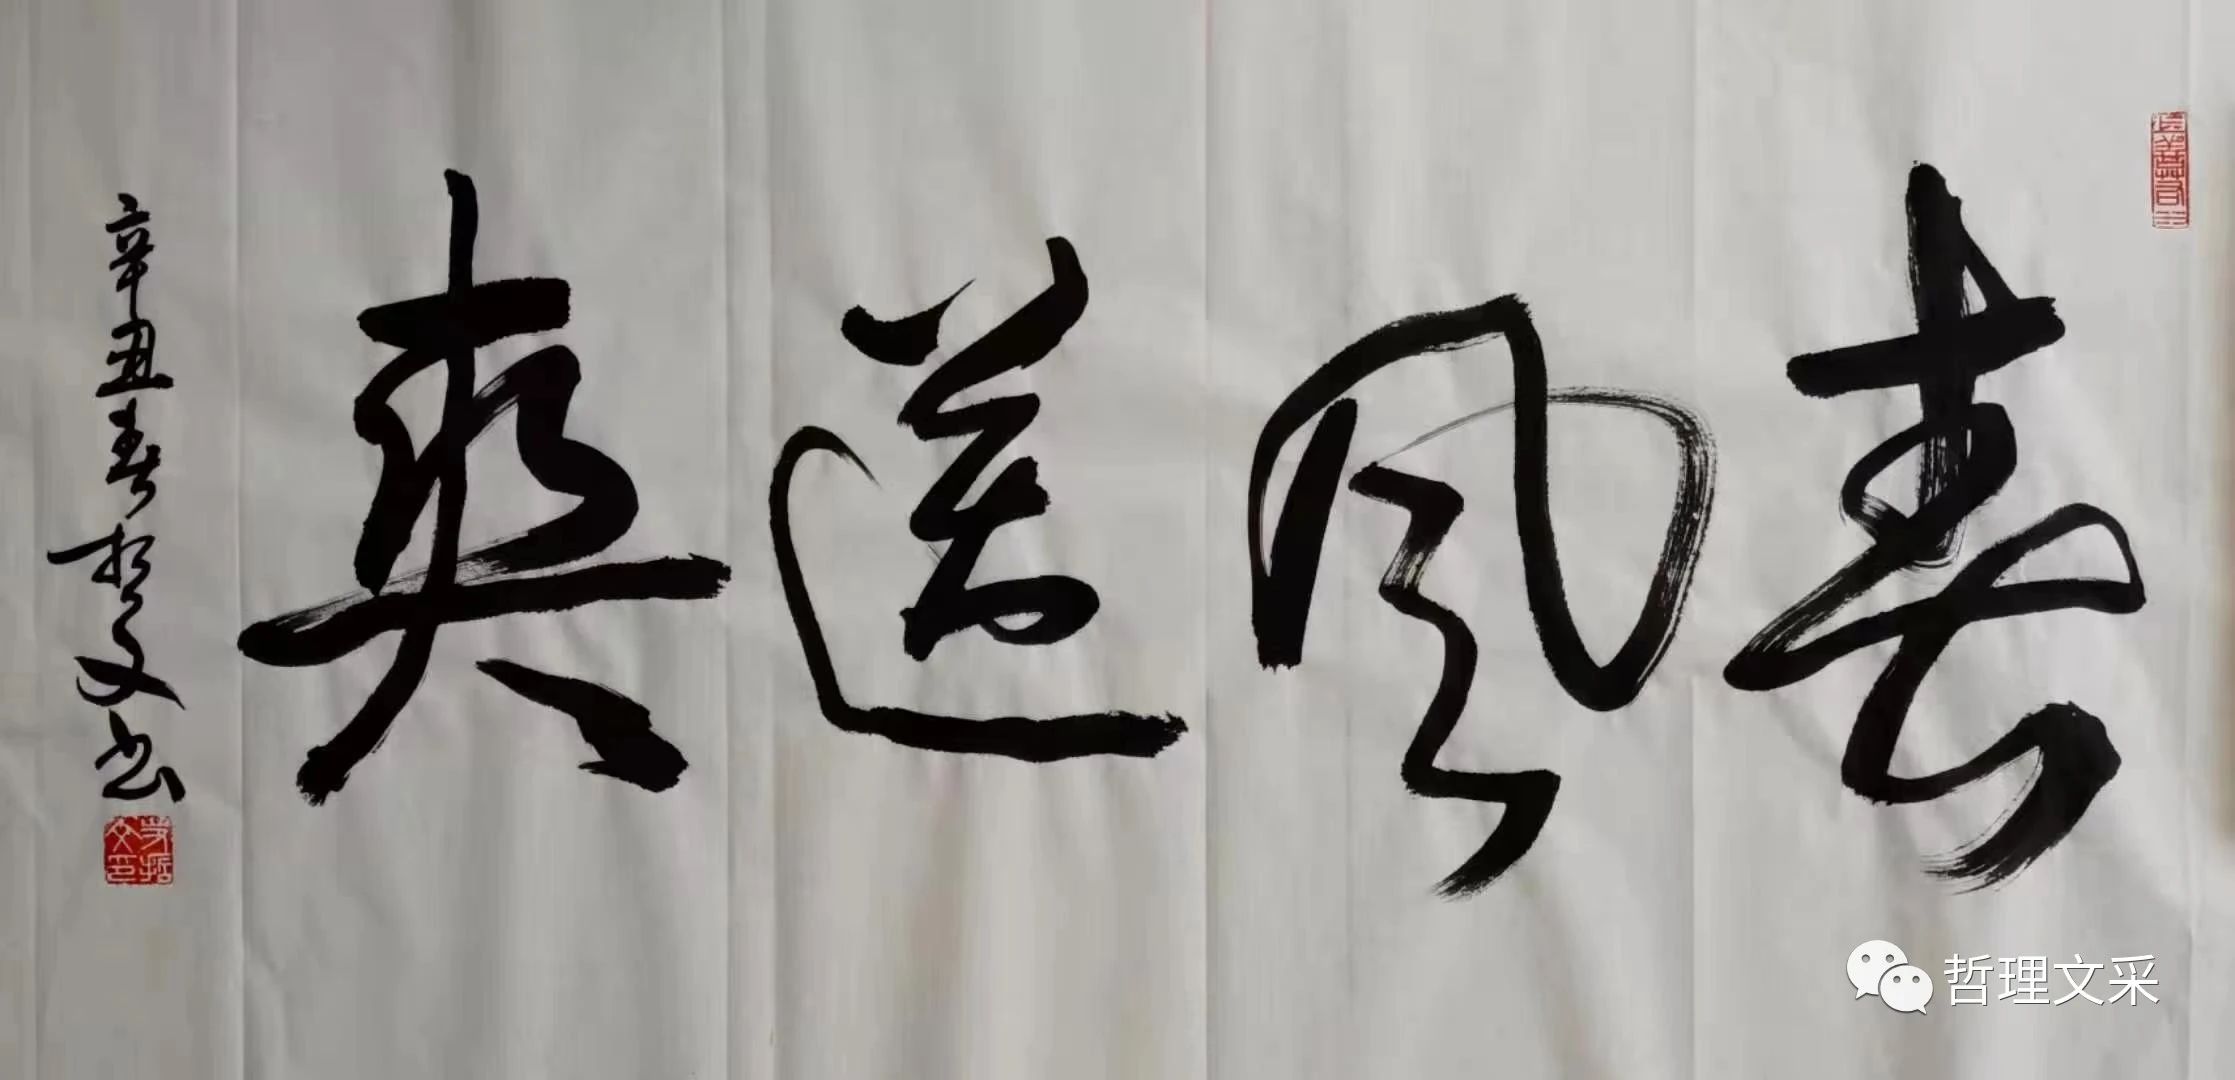 春风送爽
辛丑春哲文书
哲理文采